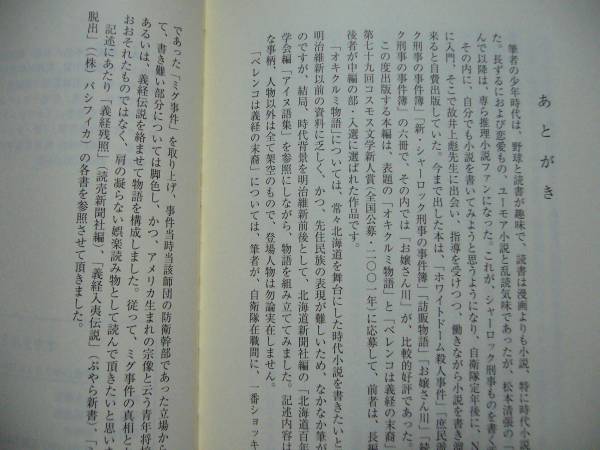 あとがき
筆者の少年時代は、野球と読書が趣味で、読書は漫画よりも小説、特に時代小説
た。長ずるにおよび恋愛もの、ユーモア小説と乱読気味であったが、松本清張の「
んで以降は、専ら推理小説ファンになった。これが、シャーロック刑事ものを書く
その内に、自分でも小説を書いてみようと思うようになり、自衛隊定年後に、N
に入門、そこで故井上彪先生に出会い、指導を受けつつ、働きながら小説を書き溜
来ると自費出版していた。今まで出した本は、「ホワイトドーム殺人事件」「庶民派
ク刑事の事件簿」「新・シャーロック刑事の事件簿」「訪販物語」「お嬢さん川」「続
ク刑事の事件簿」の六冊で、その内では「お嬢さん川」が、比較的好評であった。
この度出版する本編は、表題の「オキクルミ物語」と「ベレンコは義経の末裔」
第七十九回コスモス文学新人賞（全国公募・二〇〇一年）に応募して、前者は、長編
後者が中編の部・入選に選ばれた作品です。
「オキクルミ物語」については、常々北海道を舞台にした時代小説を書きたいと
明治維新以前の資料に乏しく、かつ、先住民族の表現が難しいため、なかなか筆が
のですが、結局、時代背景を明治維新前後として、北海道新聞社編の「北海道百年
学会編「アイヌ語集」を参照にしながら、物語を組み立ててみました。記述内容は
な事柄、人物以外は全て架空のもので、登場人物は勿論実在しません。
「ベレンコは義経の末裔」については、筆者が、自衛隊在職間に、一番ショッキ
であった「ミグ事件」を取り上げ、事件当時当該師団の防衛幹部であった立場から
が、書き難い部分については脚色し、かつ、アメリカ生まれの宗像と云う青年将校
あるいは、義経伝説を絡ませて物語を構成しました。従って、ミグ事件の真相と
おおそれたものではなく、肩の凝らない娯楽読み物として読んで頂きたいと思いま
記述にあたり「義経残照」（読売新聞社編）、「義経入夷伝説」（ぷやら新書）、「
脱出」（（株）パシフィカ）の各書を参照させて頂きました。